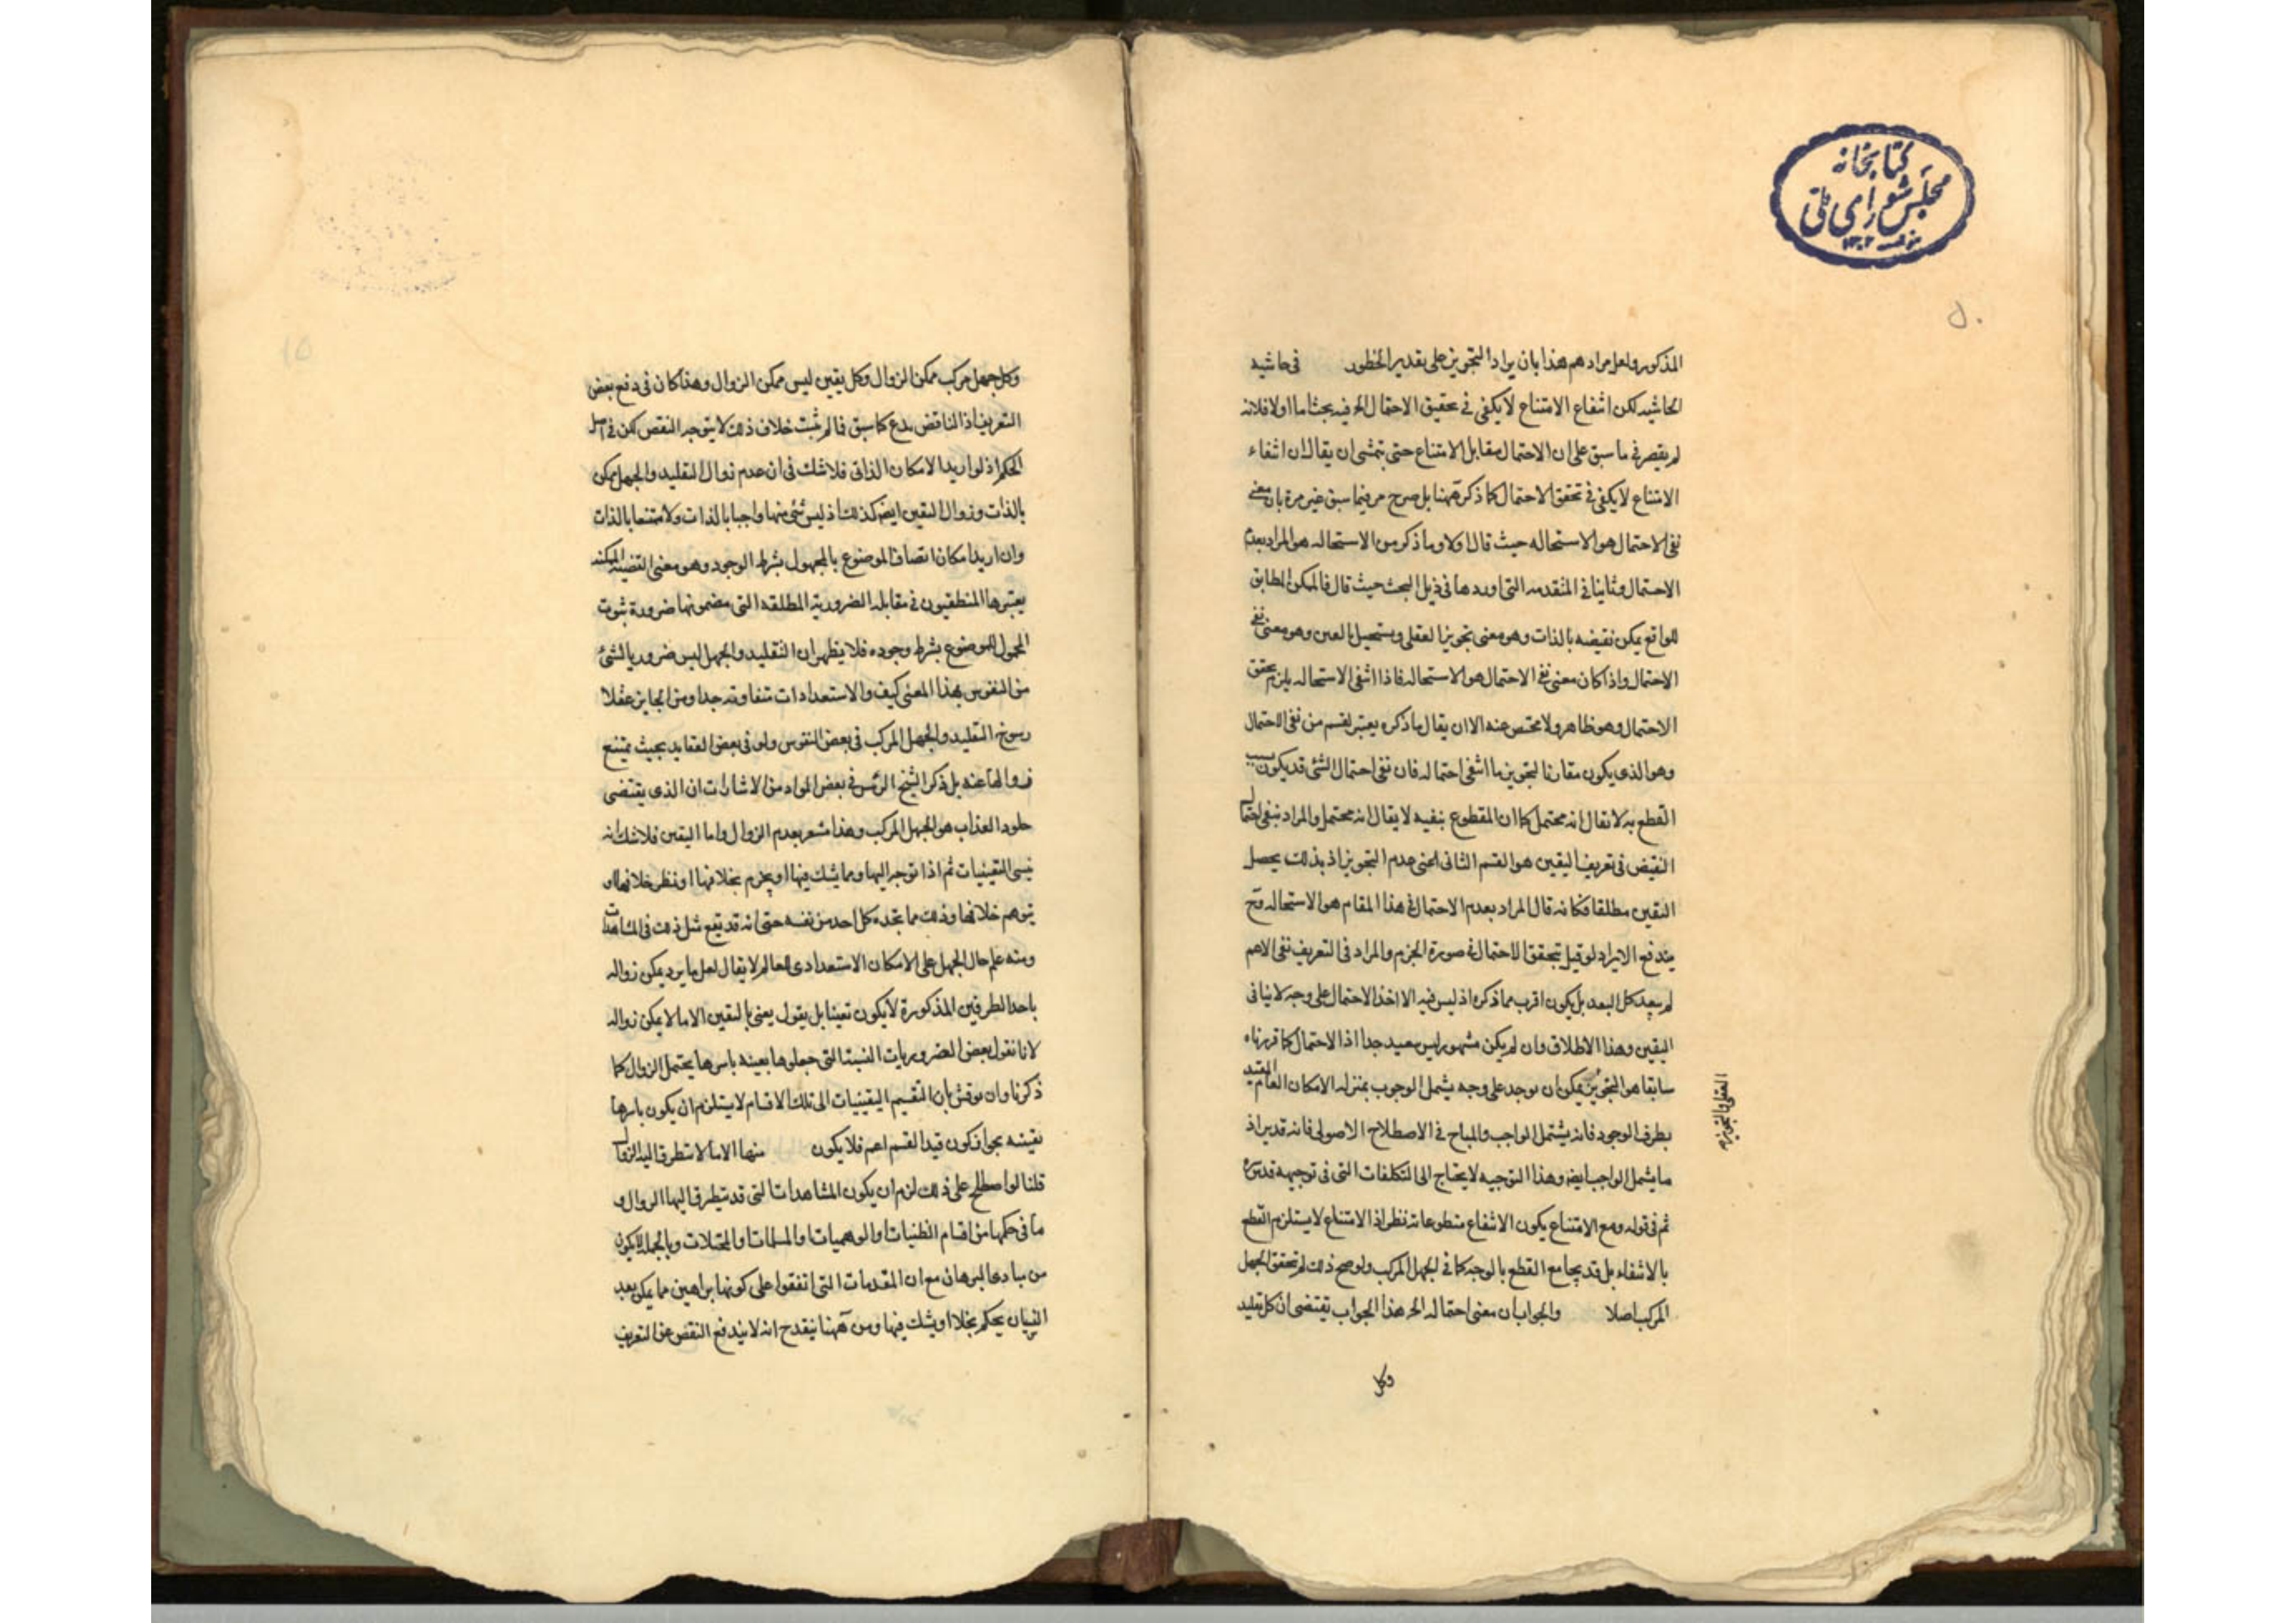 كتابخانه
مجلس شورای ملی
المذكور ولعل مرادهم هذا بان يراد التجويز على تقدير الخطور في حاشيه
الحاشيه لكن انتفاع الامتناع لا يكفى فى تحقيق الاحتمال الخ فيه بحث اما اولا فلانه
لم يقصر فى ما سبق على ان الاحتمال مقابل الامتناع حتى يتمشى ان يقال ان انتفاء
الامتناع لا يكفى فى تحقق الاحتمال كما ذكره ههنا بل صرح مر فيما سبق غير مرة بان معنى
نفى الاحتمال هو الاستحاله حيث قال اولا وما ذكر من الاستحاله هو المراد بعدم
الاحتمال وثانيا فى المتقدمه التى اوردها فى ذيل البحث حيث قال فالممكن المطابق
للواقع يمكن نقيضه بالذات وهو معنى تجويز العقلى ويستحيل بالعين وهو معنى نفى
الاحتمال واذا كان معنى نفى الاحتمال هو الاستحاله فاذا انتفى الاستحاله يلزم تحقق
الاحتمال وهو ظاهر ولا مختص عنه الا ان يقال ما ذكره يعتبر لقسم من نفى الاحتمال
وهو الذى يكون مقارنا لتجويز ما انتفى احتماله فان نفى احتمال الشئ قد يكون بسبب
القطع به لا يقال انه محتمل كما ان المقطوع بنفيه لا يقال انه محتمل والمراد بنفى احتمال
النقيض فى تعريف اليقين هو القسم الثانى اعنى عدم التجويز اذ بذلك يحصل
اليقين مطلقا فكانه قال المراد بعدم الاحتمال فى هذا المقام هو الاستحاله وح
يندفع الايراد لو قيل بتحقق الاحتمال فى صورة الجزم والمراد فى التعريف نفى الاعم
لم يبعد كل البعد بل يكون اقرب مما ذكره اذ ليس فيه الا اخذ الاحتمال على وجه لا ينافى
اليقين وهذا الاطلاق وان لم يكن مشهورا ليس ببعيد جدا اذ الاحتمال كما قررناه
سابقا هو التجويز يمكن ان يوجد على وجه يشمل الوجوب بمنزله الامكان العام المقيد
بطرف الوجود فانه يشتمل الواجب والمباح فى الاصطلاح الاصولى فانه قد يراد
ما يشمل الواجب ايضا وهذا التوجيه لا يحتاج الى التكلفات التى فى توجيهه قدس سره
ثم فى قوله ومع الامتناع يكون الانتفاع مقطوعا به نظر اذ الامتناع لا يستلزم القطع
بالانتفاء بل قد يجامع القطع بالوجه كما فى الجهل المركب ولو صح ذلك لم تحقق الجهل
المركب اصلا والجواب ان معنى احتماله الخ هذا الجواب يقتضى ان كل تقليد
وكل
وكل جهل مركب ممكن الزوال وكل يقين ليس ممكن الزوال وهذا كان فى دفع بعض
التعريف اذ الناقض يدع كما سبق فما لم يثبت خلاف ذلك لا يتوجه النقض لكن فى اصل
الحكم اذ لو اريد الامكان الذاتى فلا شك فى ان عدم زوال التقليد والجهل ممكن
بالذات وزوال اليقين ايضا كذلك اذ ليس شئ منها واجبا بالذات ولا ممتنعا بالذات
وان اريد امكان اتصاف الموضوع بالمجهول بشرط الوجود وهو معنى القضيه الممكنه
يعتبرها المنطقيون فى مقابله الضرورية المطلقه التى مضمونها ضرورة ثبوت
المحمول للموضوع بشرط وجوده فلا يظهر ان التقليد والجهل ليس ضروريا لشئ
من النفوس بهذا المعنى كيف والاستعدادات متفاوته جدا ومن الجايز عقلا
رسوخ التقليد والجهل المركب فى بعض النفوس ولو فى بعض العقايد بحيث يمتنع
زوالها عنه بل ذكر الشيخ الرئيس فى بعض المواد من الاشارات ان الذى يقتضى
خلود العذاب هو الجهل المركب وهذا مشعر بعدم الزوال واما اليقين فلا شك انه
ينسى اليقينيات ثم اذا توجه اليها ربما يشك فيها او يجزم بخلافها او نظر خلافها او
يتوهم خلافها وذلك مما يجده كل احد من نفسه حتى انه قد يقع مثل ذلك فى المشاهدات
ومنه علم حال الجهل على الامكان الاستعدادى للعالم لا يقال لعل ما يرد يمكن زواله
باحد الطرفين المذكورة لا يكون تعينا بل يقول يعنى باليقين الا ما لا يمكن زواله
لانا نقول بعض الضروريات التى جعلوها بعينه باسرها يحتمل الزوال كما
ذكرنا وان نوقش بان التقسيم اليقينيات الى تلك الاقسام لا يستلزم ان يكون باسرها
يقينيه بجواز كون قيد القسم اعم فلا يكون منها الا ما لا يتطرق اليه الزوال
قلنا لو اصطلح على ذلك لزم ان يكون المشاهدات التى قد يتطرق اليها الزوال و
ما فى حكمها من اقسام الظنيات والوهميات والمسلمات والمخيلات وبالجمله لا يكون
من مبادى البرهان مع ان المقدمات التى اتفقوا على كونها براهين مما يمكن بعد
النسيان يحكم بخلافها او يشك فيها ومن ههنا ينقدح انه لا يندفع النقض عن التعريف